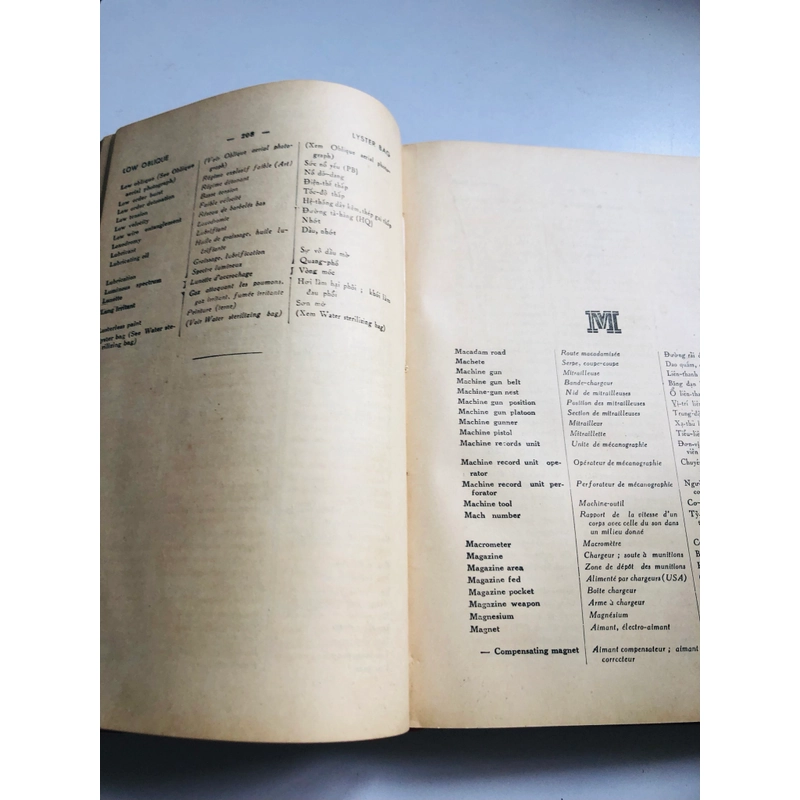 — 208 —
LOW OBLIQUE
LYSTER BAG
Low oblique (See Oblique (Voir Oblique aerial photo- (Xem Oblique aerial photo-
aerial photograph) graph) graph)
Low order burst Régime explosif faible (Art) Sức nổ yếu (PB)
Low order detonation Régime détonant Nổ
Low tension Basse tension Điện-thế thấp
Low velocity Faible vélocité Tốc-độ thấp
Low wire entanglement Réseau de barbelés bas Hệ-thống dây kẽm thép gai thấp
Loxodromie Đường tà-hàng (HQ)
Lubricant Lubrifiant Nhớt
Lubricating oil Huile de graissage, huile lu- Dầu, nhớt
brifiante
Lubrication Graissage, lubrification Sự vô dầu mỡ
Luminous spectrum Spectre lumineux Quang-phổ
Lunette Lunette d'accrochage Vòng móc
Lung irritant Gaz attaquant les poumons, Hơi làm hại phổi ; khói làm
gaz irritant, fumée irritante đau phổi
Lusterless paint Peinture (terne) Sơn mờ
Lyster bag (See Water ste- (Voir Water sterilizing bag) (Xem Water sterilizing bag)
rilizing bag)
M
Macadam road Route macadamisée Đường rải
Machete Serpe, coupe-coupe Dao quắm,
Machine gun Mitrailleuse Liên-thanh
Machine gun belt Bande-chargeur Băng đạn
Machine-gun nest Nid de mitrailleuses Ổ liên-thanh
Machine gun position Position des mitrailleuses Vị-trí liên
Machine gun platoon Section de mitrailleuses Trung-
Machine gunner Mitrailleur Xạ-thủ
Machine pistol Mitraillette Tiểu-liên
Machine records unit Unite de mécanographie Đơn-vị
viên
Machine record unit ope- Opérateur de mécanographie Chuyên
rator
Machine record unit per- Perforateur de mécanographie
forator
Machine tool Machine-outil Cơ-
Mach number Rapport de la vitesse d'un Tỷ-
corps avec celle du son dans
un milieu donné
Macrometer Macromètre
Magazine Chargeur ; soute à munitions
Magazine area Zone de dépôt des munitions
Magazine fed Alimenté par chargeurs (USA)
Magazine pocket Boîte chargeur
Magazine weapon Arme à chargeur
Magnesium Magnésium
Magnet Aimant, électro-aimant
— Compensating magnet Aimant compensateur ; aimant
correcteur